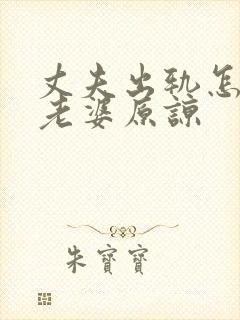 丈夫出轨怎
老婆原谅
朱寶寶